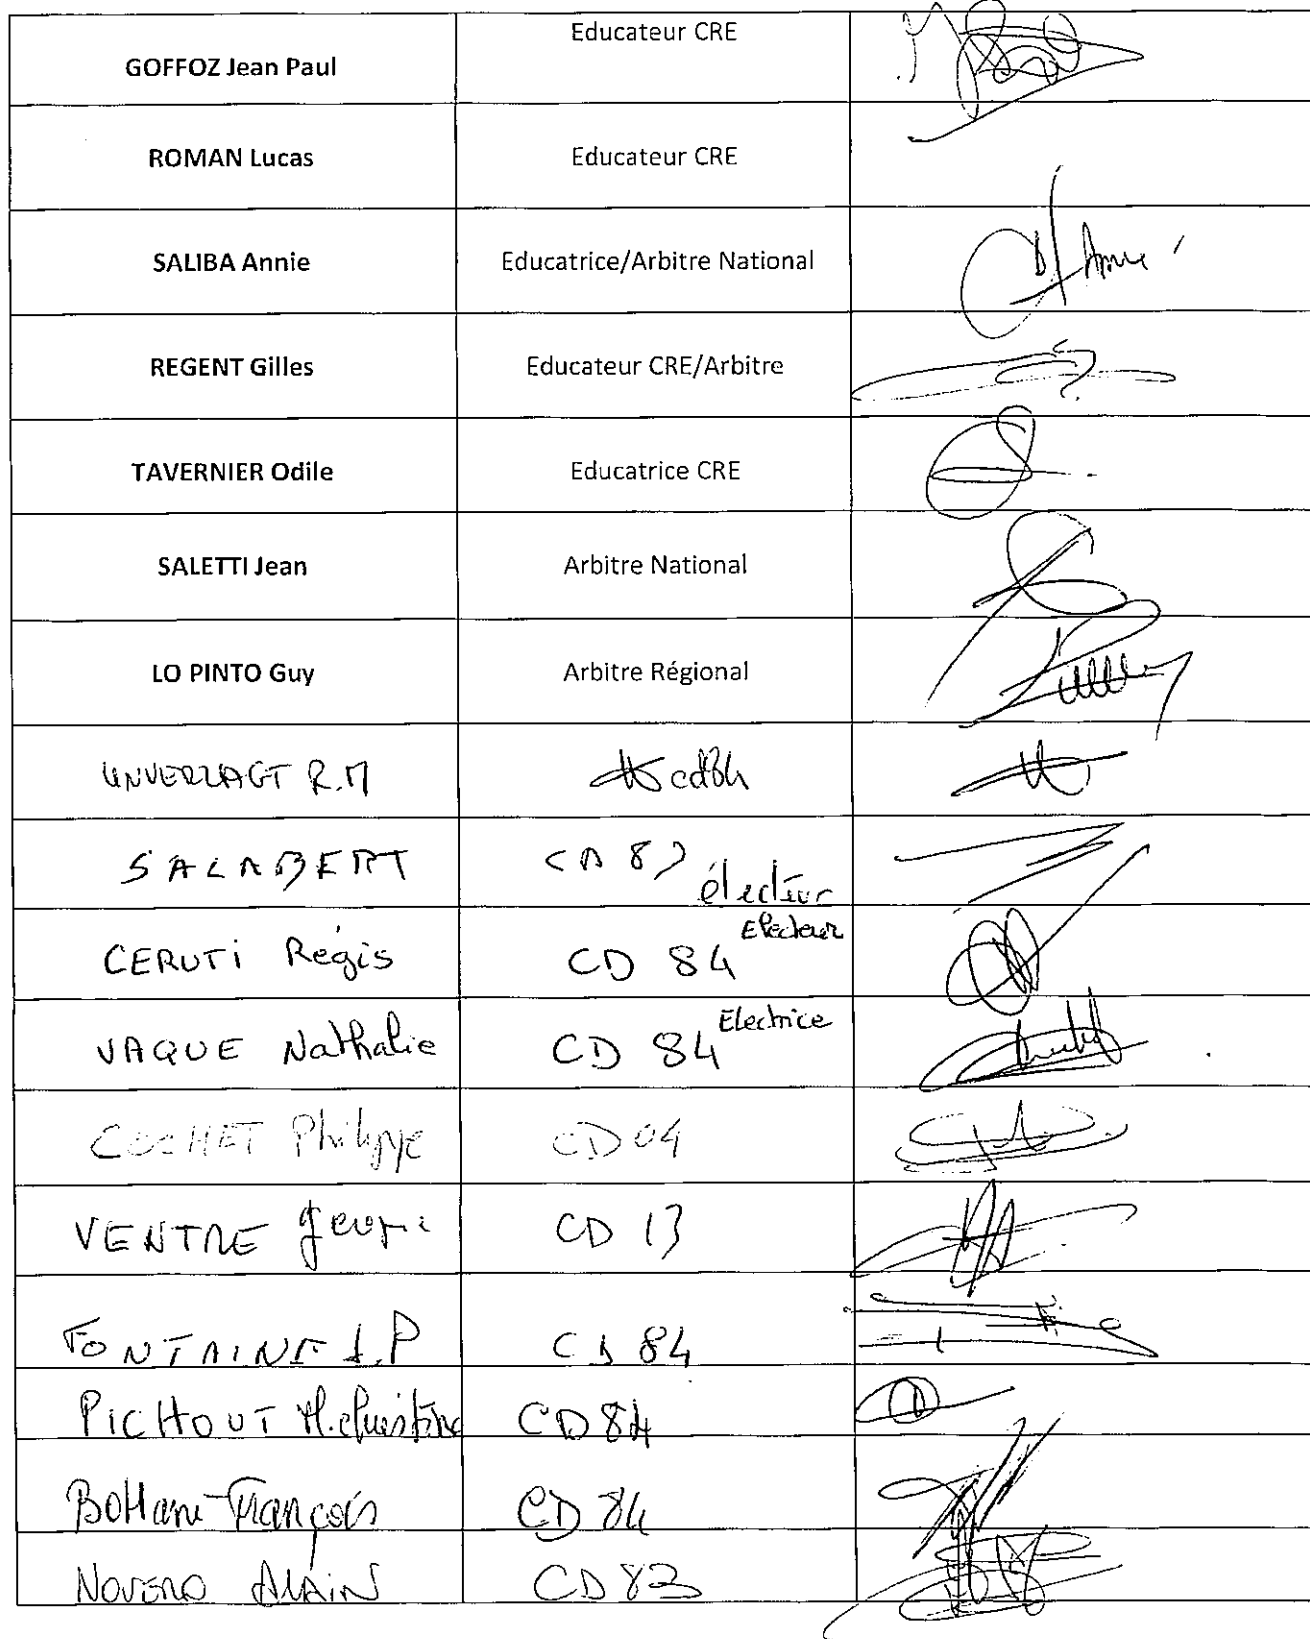 GOFFOZ Jean Paul Educateur CRE
ROMAN Lucas Educateur CRE
SALIBA Annie Educatrice/Arbitre National Annie
REGENT Gilles Educateur CRE/Arbitre
TAVERNIER Odile Educatrice CRE
SALETTI Jean Arbitre National
LO PINTO Guy Arbitre Régional
UNVERZAGT R.M cd84
SALABERT CD 83 électeur
CERUTI Régis CD 84 Electeur
VAQUE Nathalie CD 84 Electrice
COCHET Philippe CD 04
VENTRE CD 13
FONTAINE J.P CD 84
PICHOUT M.christine CD 84
François CD 84
NOVERO ALAIN CD 83